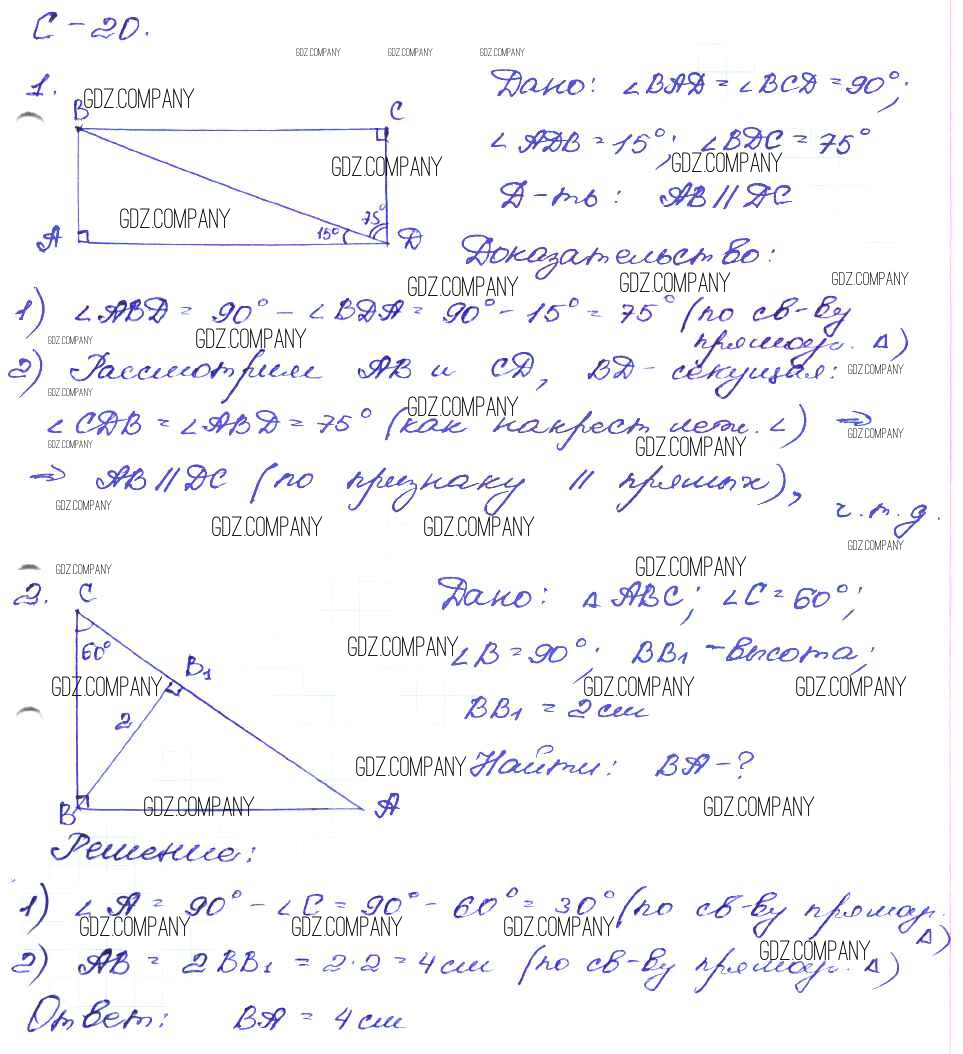 С-20.
GDZ.COMPANY GDZ.COMPANY GDZ.COMPANY
1.
GDZ.COMPANY
B C
GDZ.COMPANY
GDZ.COMPANY
A 15° 75° D
Дано: ∠BAD = ∠BCD = 90°;
∠ADB = 15°; ∠BDC = 75°
GDZ.COMPANY
Д-ть: AB || DC
Доказательство:
GDZ.COMPANY GDZ.COMPANY GDZ.COMPANY
1) ∠ABD = 90° - ∠BDA = 90° - 15° = 75° (по св-ву
прямоуг. Δ)
GDZ.COMPANY GDZ.COMPANY
2) Рассмотрим AB и CD, BD - секущая:
GDZ.COMPANY GDZ.COMPANY
GDZ.COMPANY
∠CDB = ∠ABD = 75° (как накрест леж. ∠) ⇒
GDZ.COMPANY GDZ.COMPANY GDZ.COMPANY
⇒ AB || DC (по признаку || прямых),
ч.т.д.
GDZ.COMPANY
GDZ.COMPANY GDZ.COMPANY
GDZ.COMPANY
GDZ.COMPANY GDZ.COMPANY
2.
C
60°
B₁
GDZ.COMPANY
2
B A
GDZ.COMPANY
Дано: Δ ABC; ∠C = 60°;
GDZ.COMPANY
∠B = 90°; BB₁ - высота;
GDZ.COMPANY GDZ.COMPANY
BB₁ = 2 см
GDZ.COMPANY
Найти: BA - ?
GDZ.COMPANY
Решение:
1) ∠A = 90° - ∠C = 90° - 60° = 30° (по св-ву прямоуг.
Δ)
GDZ.COMPANY GDZ.COMPANY GDZ.COMPANY
GDZ.COMPANY
2) AB = 2BB₁ = 2·2 = 4 см (по св-ву прямоуг. Δ)
Ответ: BA = 4 см